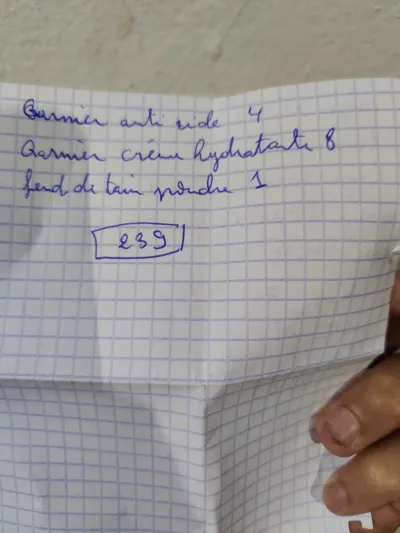 Garnier anti ride 4
Garnier crème hydratante 8
fond de tain poudre 1
239